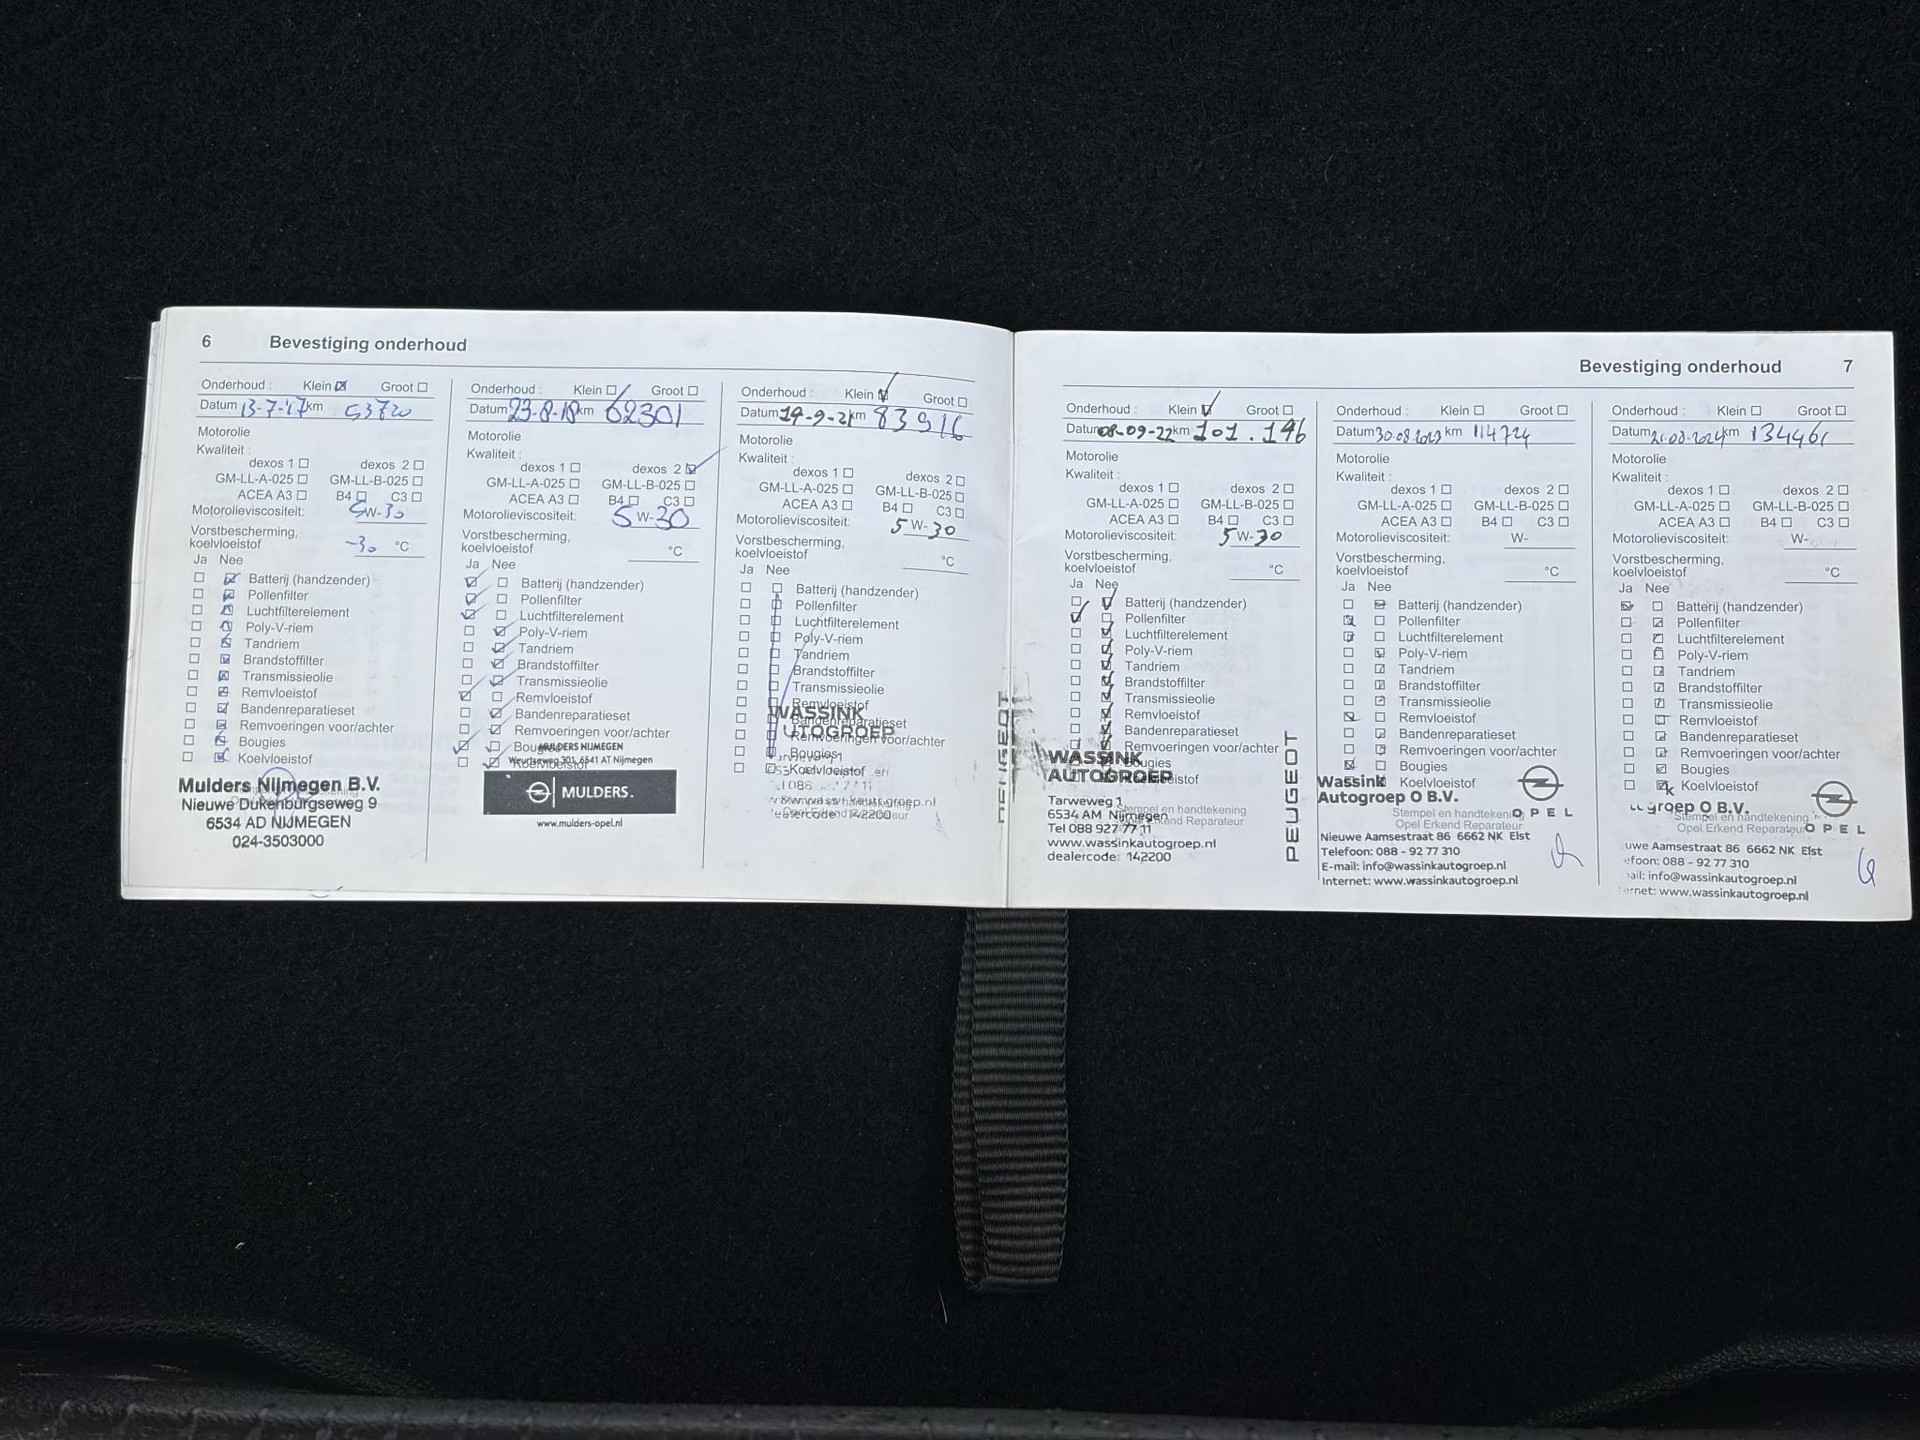 6 Bevestiging onderhoud
Onderhoud : Klein Groot
Datum 13-7-'17 km 53720
Motorolie
Kwaliteit :
dexos 1 dexos 2
GM-LL-A-025 GM-LL-B-025
ACEA A3 B4 C3
Motorolieviscositeit: 5W-30
Vorstbescherming,
koelvloeistof -30 °C
Ja Nee
Batterij (handzender)
Pollenfilter
Luchtfilterelement
Poly-V-riem
Tandriem
Brandstoffilter
Transmissieolie
Remvloeistof
Bandenreparatieset
Remvoeringen voor/achter
Bougies
Koelvloeistof
Mulders Nijmegen B.V.
Nieuwe Dukenburgseweg 9
6534 AD NIJMEGEN
024-3503000
Onderhoud : Klein Groot
Datum 23-8-18 km 62301
Motorolie
Kwaliteit :
dexos 1 dexos 2
GM-LL-A-025 GM-LL-B-025
ACEA A3 B4 C3
Motorolieviscositeit: 5 W-30
Vorstbescherming,
koelvloeistof °C
Ja Nee
Batterij (handzender)
Pollenfilter
Luchtfilterelement
Poly-V-riem
Tandriem
Brandstoffilter
Transmissieolie
Remvloeistof
Bandenreparatieset
Remvoeringen voor/achter
Bougies
Koelvloeistof
MULDERS NIJMEGEN
6541 AT Nijmegen
MULDERS.
www.mulders-opel.nl
Onderhoud : Klein Groot
Datum 14-9-21 km 83916
Motorolie
Kwaliteit :
dexos 1 dexos 2
GM-LL-A-025 GM-LL-B-025
ACEA A3 B4 C3
Motorolieviscositeit: 5 W-30
Vorstbescherming,
koelvloeistof °C
Ja Nee
Batterij (handzender)
Pollenfilter
Luchtfilterelement
Poly-V-riem
Tandriem
Brandstoffilter
Transmissieolie
Remvloeistof
Bandenreparatieset
Remvoeringen voor/achter
Bougies
Koelvloeistof
WASSINK
AUTOGROEP
dealercode 142200
PEUGEOT
Bevestiging onderhoud 7
Onderhoud : Klein Groot
Datum 08-09-22 km 101.196
Motorolie
Kwaliteit :
dexos 1 dexos 2
GM-LL-A-025 GM-LL-B-025
ACEA A3 B4 C3
Motorolieviscositeit: 5W-30
Vorstbescherming,
koelvloeistof °C
Ja Nee
Batterij (handzender)
Pollenfilter
Luchtfilterelement
Poly-V-riem
Tandriem
Brandstoffilter
Transmissieolie
Remvloeistof
Bandenreparatieset
Remvoeringen voor/achter
Bougies
Koelvloeistof
WASSINK
AUTOGROEP
Tarweweg 1
6534 AM Nijmegen
Tel 088 927 77 11
www.wassinkautogroep.nl
dealercode: 142200
Stempel en handtekening
Opel Erkend Reparateur
PEUGEOT
Onderhoud : Klein Groot
Datum 30-08-2023 km 114724
Motorolie
Kwaliteit :
dexos 1 dexos 2
GM-LL-A-025 GM-LL-B-025
ACEA A3 B4 C3
Motorolieviscositeit: W-
Vorstbescherming,
koelvloeistof °C
Ja Nee
Batterij (handzender)
Pollenfilter
Luchtfilterelement
Poly-V-riem
Tandriem
Brandstoffilter
Transmissieolie
Remvloeistof
Bandenreparatieset
Remvoeringen voor/achter
Bougies
Koelvloeistof
Wassink
Autogroep O B.V.
OPEL
Stempel en handtekening
Opel Erkend Reparateur
Nieuwe Aamsestraat 86 6662 NK Elst
Telefoon: 088 - 92 77 310
E-mail: info@wassinkautogroep.nl
Internet: www.wassinkautogroep.nl
Onderhoud : Klein Groot
Datum 21-08-2024 km 134461
Motorolie
Kwaliteit :
dexos 1 dexos 2
GM-LL-A-025 GM-LL-B-025
ACEA A3 B4 C3
Motorolieviscositeit: W-
Vorstbescherming,
koelvloeistof °C
Ja Nee
Batterij (handzender)
Pollenfilter
Luchtfilterelement
Poly-V-riem
Tandriem
Brandstoffilter
Transmissieolie
Remvloeistof
Bandenreparatieset
Remvoeringen voor/achter
Bougies
Koelvloeistof
groep O B.V.
OPEL
Stempel en handtekening
Opel Erkend Reparateur
uwe Aamsestraat 86 6662 NK Elst
efoon: 088 - 92 77 310
ail: info@wassinkautogroep.nl
ernet: www.wassinkautogroep.nl